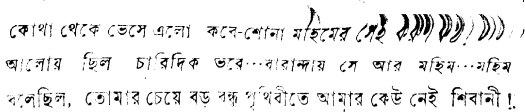 কোথা থেকে ভেসে এলো কবে-শোনা মহিমের সেই
আলোয় ছিল চারিদিক ভরে...বারান্দায় সে আর মহিম...মহিম
বলেছিল, তোমার চেয়ে বড় বন্ধু পৃথিবীতে আমার কেউ নেই শিবানী !